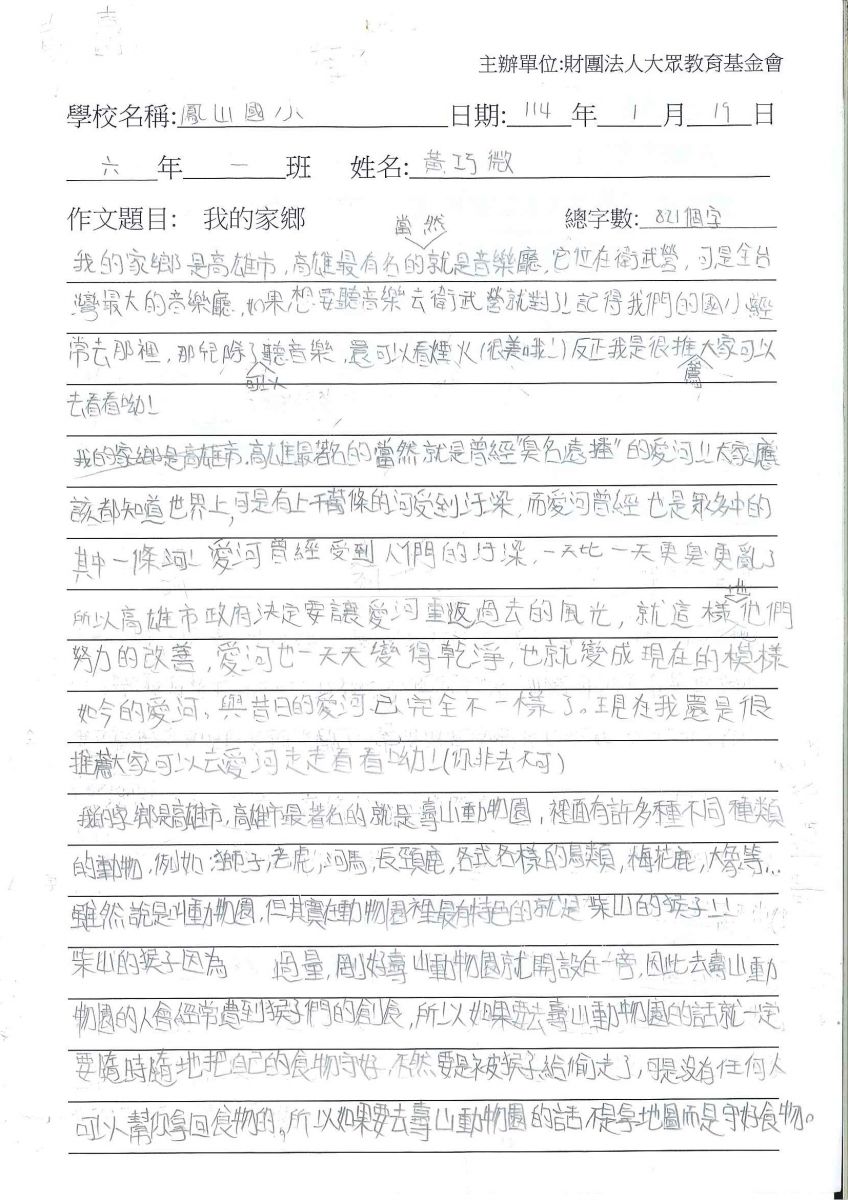 主辦單位:財團法人大眾教育基金會
學校名稱:鳳山國小 日期:114年1月19日
六年一班 姓名:黃巧微
作文題目: 我的家鄉 總字數:821個字
當然
我的家鄉是高雄市,高雄最有名的就是音樂廳,它位在衛武營,可是全台
灣最大的音樂廳,如果想要聽音樂去衛武營就對了!記得我們的國小經
常去那裡,那兒除了聽音樂,還可以看煙火(很美哦!)反正我是很推大家可以
可以 薦
去看看呦!
我的家鄉是高雄市,高雄最著名的當然就是曾經"臭名遠播"的愛河!!大家應
該都知道世界上,可是有上千萬條的河受到汙染,而愛河曾經也是眾多中的
其中一條河!愛河曾經受到人們的汙染,一天比一天更臭更亂了
所以高雄市政府決定要讓愛河重返過去的風光,就這樣他們
地
努力的改善,愛河也一天天變得乾淨,也就變成現在的模樣
如今的愛河,與昔日的愛河已完全不一樣了。現在我還是很
推薦大家可以去愛河走走看看呦!(你非去不可)
我的家鄉是高雄市,高雄市最著名的就是壽山動物園,裡面有許多種不同種類
的動物,例如:獅子,老虎,河馬,長頸鹿,各式各樣的鳥類,梅花鹿,大象等...
雖然說是叫動物園,但其實在動物園裡最有特色的就是柴山的猴子!!
柴山的猴子因為 過量,剛好壽山動物園就開設在一旁,因此去壽山動
物園的人會經常遭到猴子們的創食,所以如果要去壽山動物園的話就一定
要隨時隨地把自己的食物守好,不然要是被猴子給偷走了,可是沒有任何人
可以幫你拿回食物的,所以如果要去壽山動物園的話不是拿地圖而是守好食物。